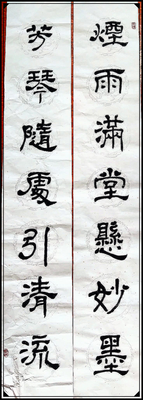 煙雨滿堂懸妙墨
芳琴隨處引清流